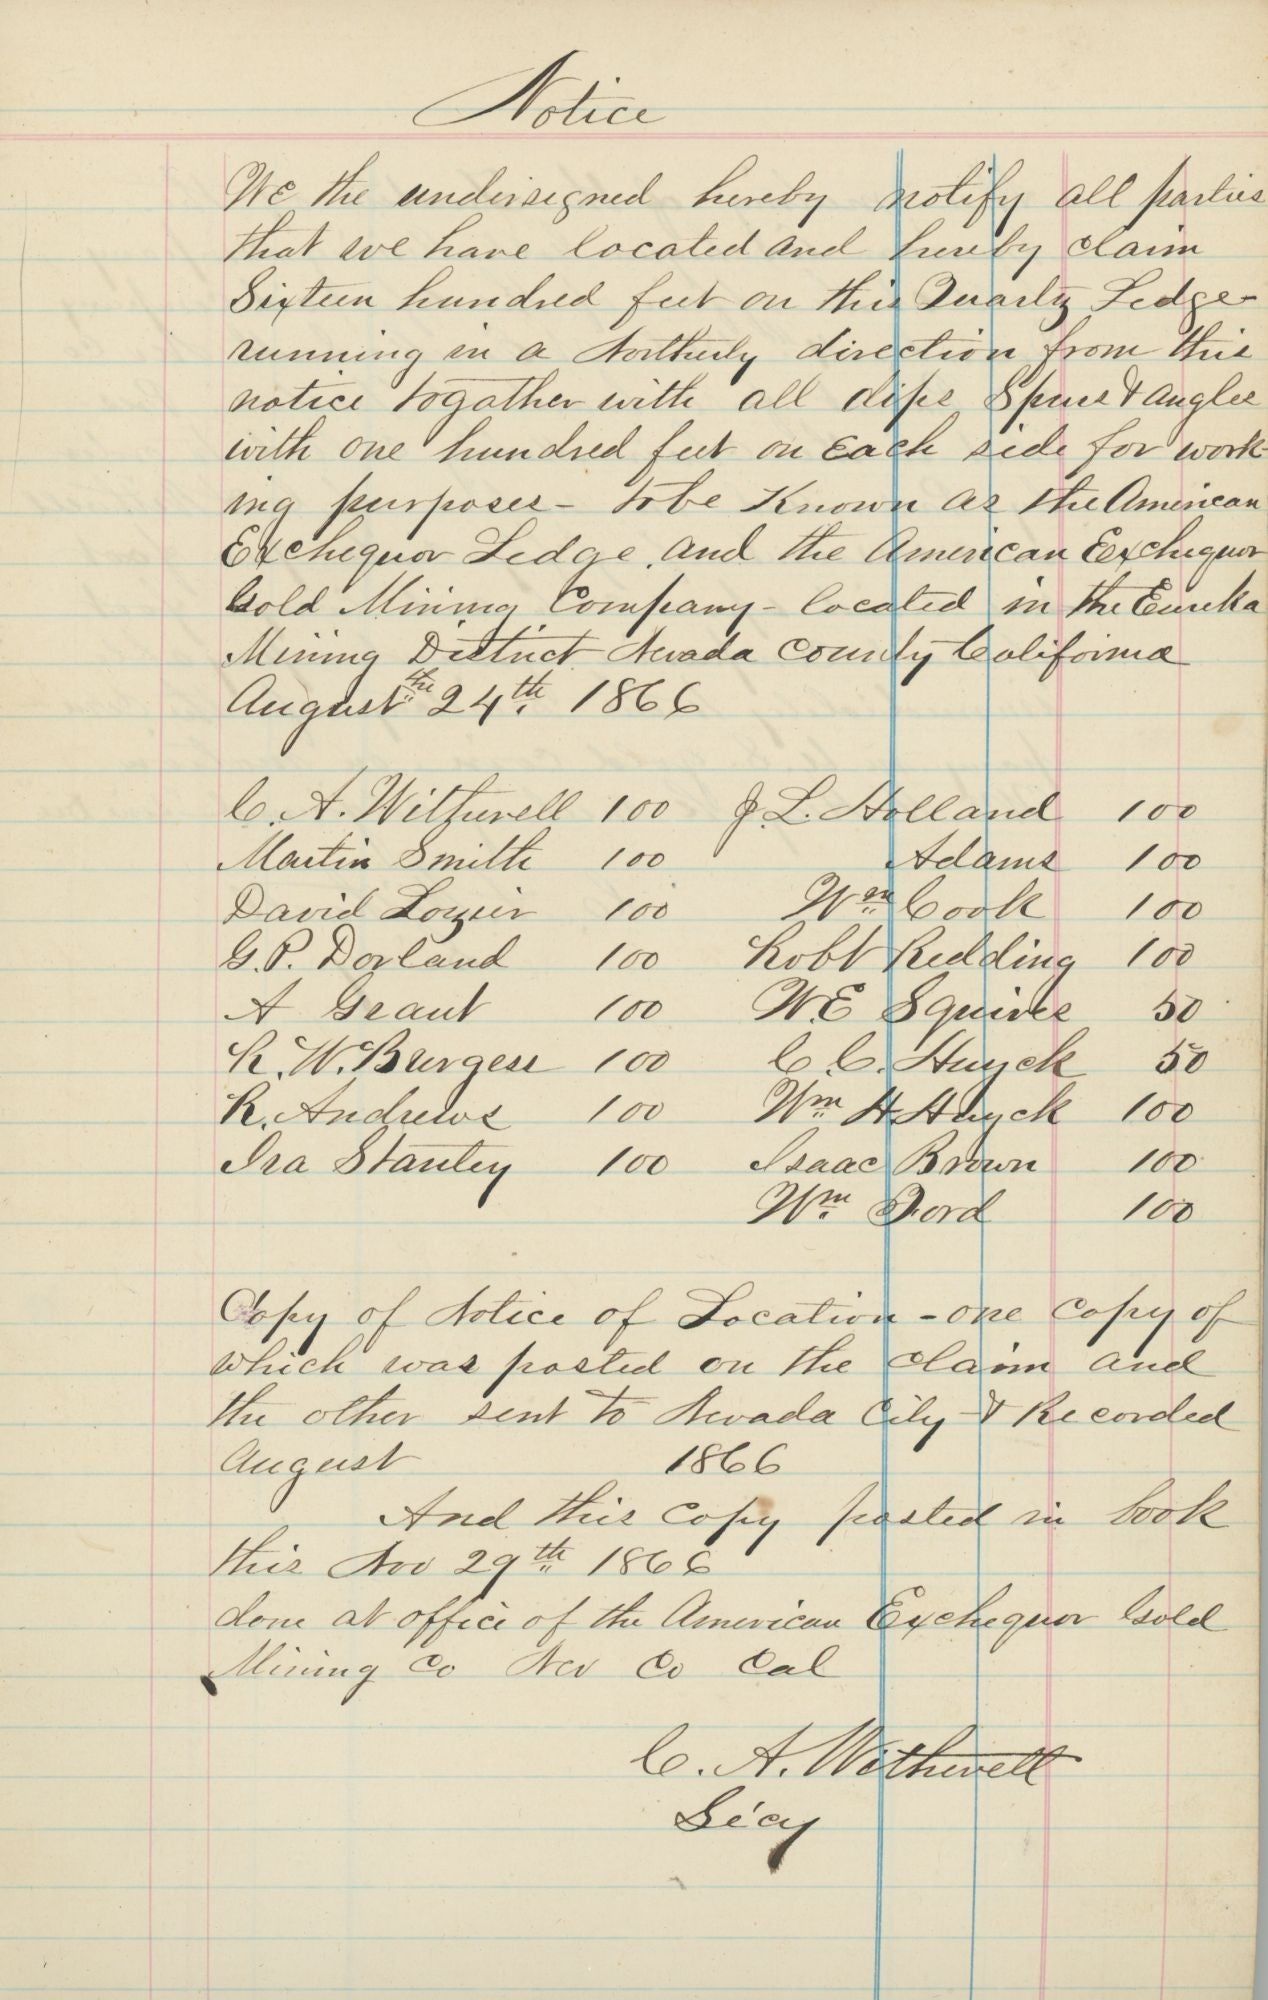 Notice
We the undersigned hereby notify all parties
that we have located and hereby claim
Sixteen hundred feet on this Quartz Ledge
running in a Northerly direction from this
notice togather with all dips Spurs & angles
with one hundred feet on Each side for work-
ing purposes - to be Known as the American
Exchequor Ledge, and the American Exchequor
Gold Mining Company - located in the Eureka
Mining District Nevada County California
August the 24th 1866
C. A. Witherell 100 J. L. Holland 100
Martin Smith 100 Adams 100
David Lozier 100 Wm Cook 100
G. P. Dorland 100 Robt Redding 100
A Grant 100 W. E Squires 50
R. W. Burgess 100 C. C. Huyck 50
R. Andrews 100 Wm H. Huyck 100
Ira Stanley 100 Isaac Brown 100
Wm Ford 100
Copy of Notice of Location - one copy of
which was posted on the claim and
the other sent to Nevada City & Recorded
August 1866
And this copy posted in book
this Nov 29th 1866
done at office of the American Exchequor Gold
Mining Co Nev Co Cal
C. A. Witherell
Secy